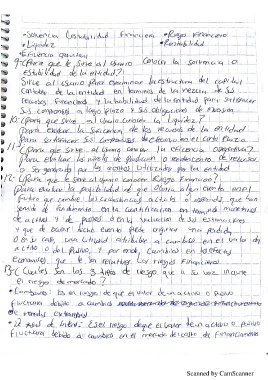 •Solvencia (estabilidad) Financiera •Riesgo Financiero
•Liquidez •Rentabilidad
•Eficiencia operativa
9-¿Para que le sirve al usuario conocer la solvencia o
estabilidad de la entidad?
Sirve al usuario para examinar la estructura del capital
contable de la entidad en terminos de la mezcla de sus
recursos financieros y la habilidad de la entidad para satisfacer
sus compromisos a largo plazo y sus obligaciones de inversión
10-¿Para que sirve al usuario conocer la liquidez?
Para evaluar la suficiencia de los recursos de la entidad
Para satisfacer sus compromisos de efectivo en el corto Plazo
11-¿Para que sirve al usuario conocer la eficiencia operativa?
Para evaluar los niveles de producción o rendimiento de recursos
a ser generados por los activos utilizados por la entidad
12-¿Para que le sirve al usuario conocer Riesgo Financiero?
Para evaluar la posibilidad de que ocurra algún evento en el
futuro que cambie las circunstancias actuales o esperadas, que han
servido de fundamento en la cuantificación en terminos monetarios
de activos y pasivos o en la valuación de sus estimaciones
y que de ocurrir dicho evento puede originar una perdida
o en su caso, una utilidad atribuible a cambios en el valor de
activo o del pasivo y por ende, cambios en los efectos
Economicos que le son relativos. Los riesgos financieros
13-¿Cuáles son los 3 tipos de riesgo que a su vez incluye
el riesgo de mercado?
•Cambiario: Es un riesgo de que el valor de un activo o pasivo
fluctuará debido a cambios
de moneda extranjera
•De tasas de Interés: Es el riesgo de que el valor de un activo o pasivo
fluctuará debido a cambios en el mercado del costo de financiamiento
Scanned by CamScanner